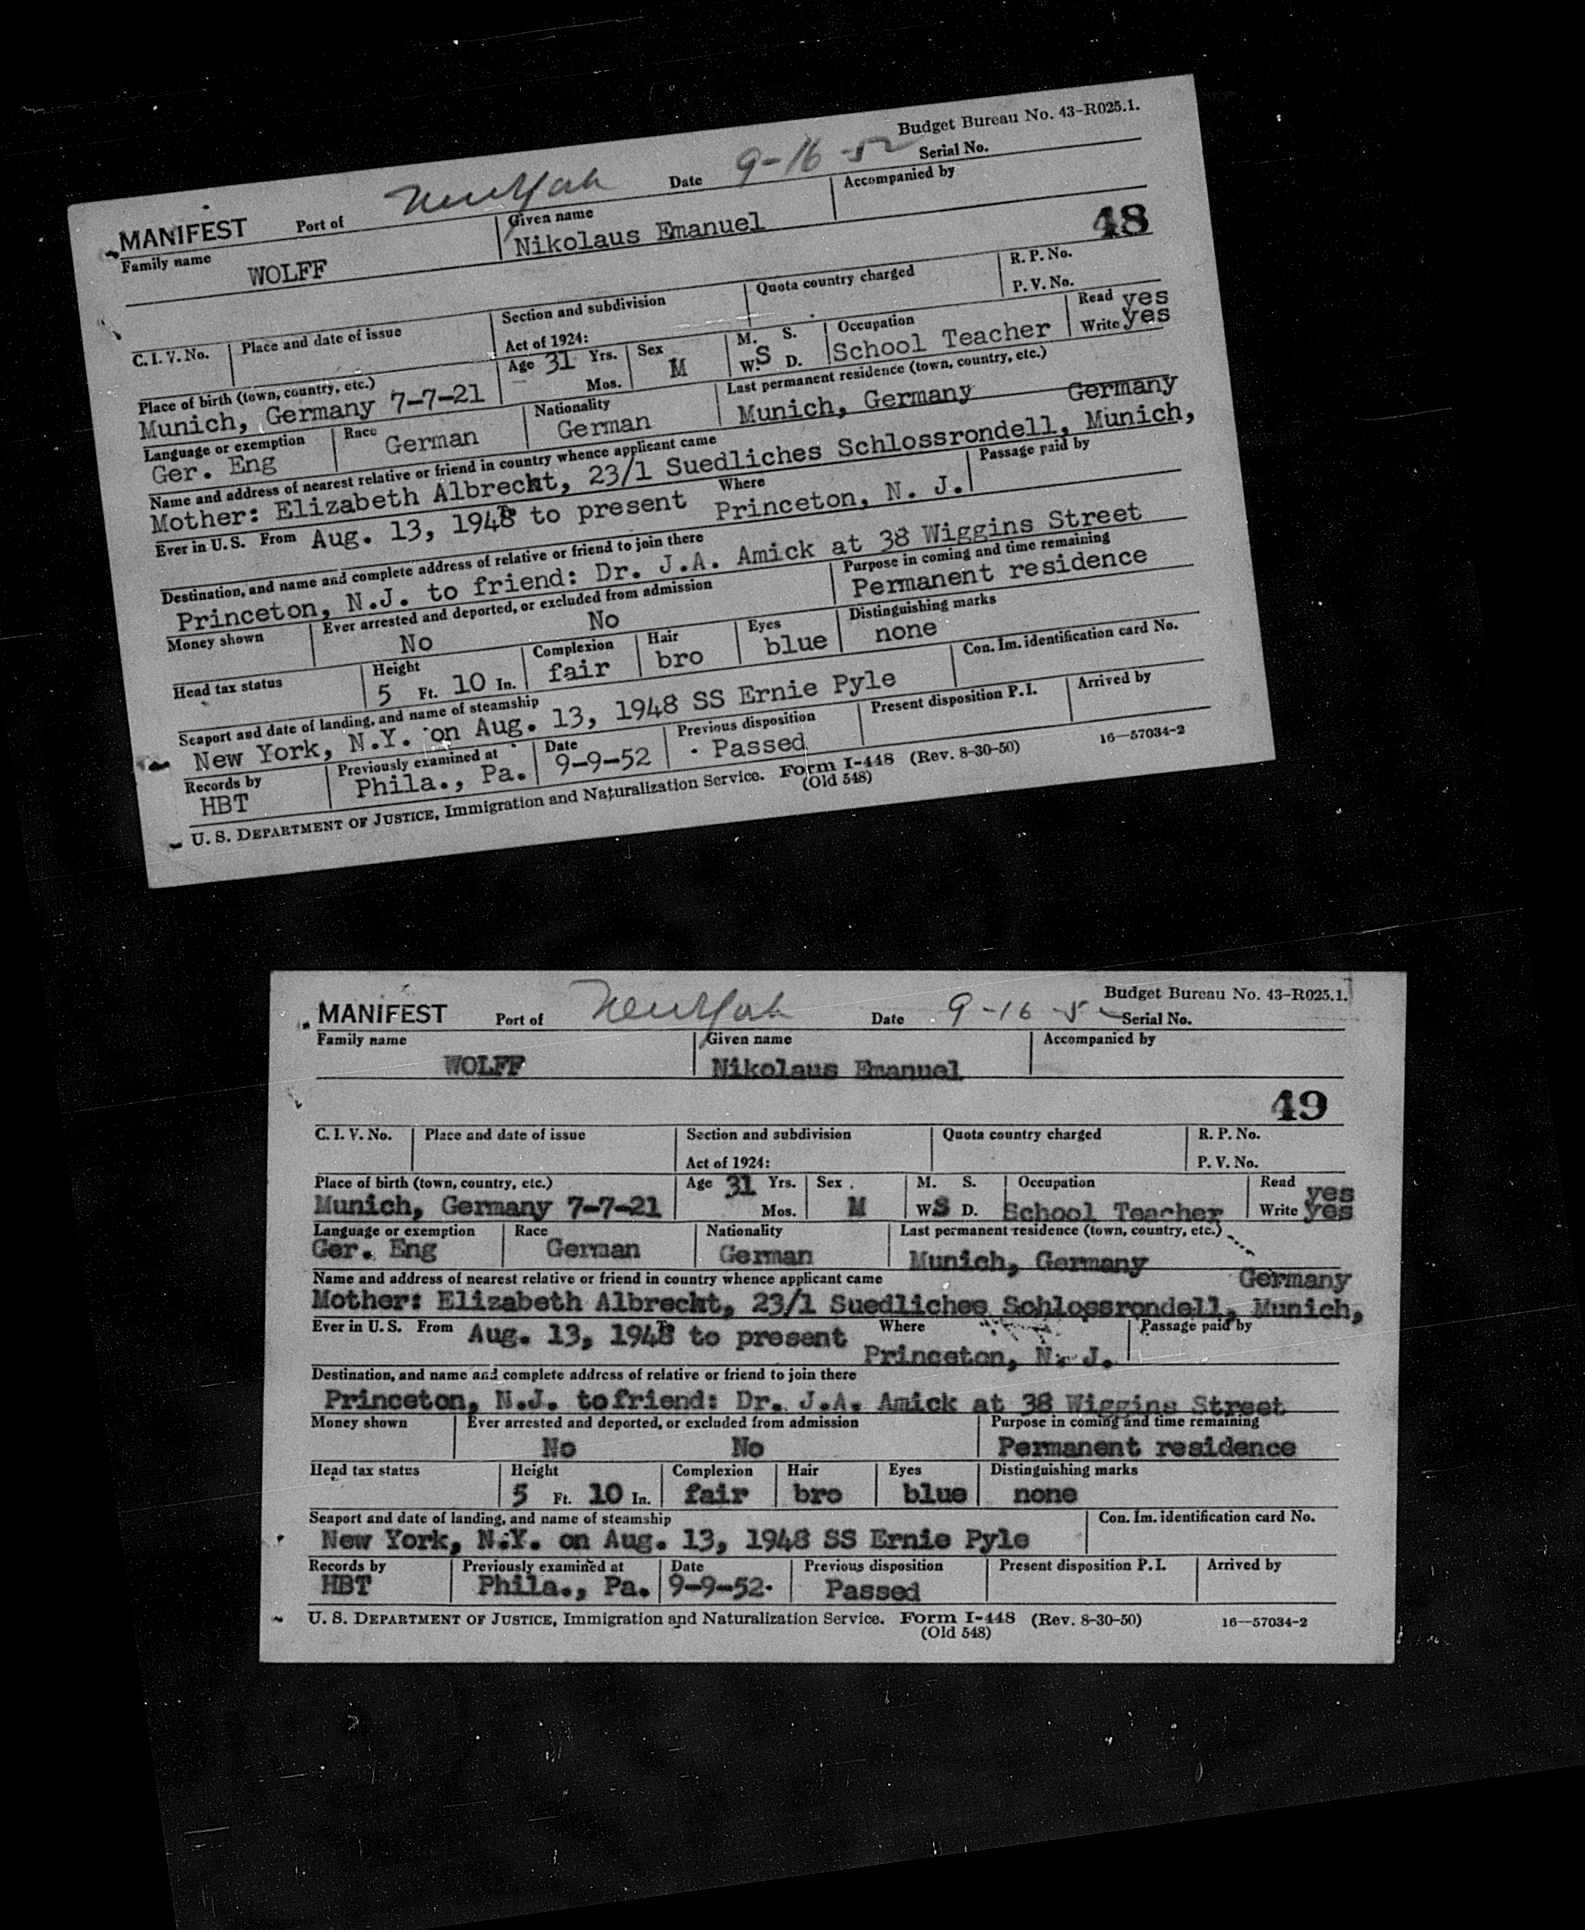 Budget Bureau No. 43-R025.1.
MANIFEST Port of New York Date 9-16-52 Serial No.
Family name Given name Accompanied by
WOLFF Nikolaus Emanuel
48
C. I. V. No. Place and date of issue Section and subdivision Quota country charged R. P. No.
Act of 1924: P. V. No.
Place of birth (town, country, etc.) Age 31 Yrs. Sex M. S. Occupation Read yes
Munich, Germany 7-7-21 Mos. M W. S D. School Teacher Write yes
Language or exemption Race Nationality Last permanent residence (town, country, etc.)
Ger. Eng German German Munich, Germany
Name and address of nearest relative or friend in country whence applicant came Germany
Mother: Elizabeth Albrecht, 23/1 Suedliches Schlossrondell, Munich,
Ever in U.S. From Aug. 13, 1948 to present Where Princeton, N. J. Passage paid by
Destination, and name and complete address of relative or friend to join there
Princeton, N.J. to friend: Dr. J.A. Amick at 38 Wiggins Street
Money shown Ever arrested and deported, or excluded from admission Purpose in coming and time remaining
No No Permanent residence
Head tax status Height Complexion Hair Eyes Distinguishing marks
5 Ft. 10 In. fair bro blue none
Seaport and date of landing, and name of steamship Con. Im. identification card No.
New York, N.Y. on Aug. 13, 1948 SS Ernie Pyle
Records by Previously examined at Date Previous disposition Present disposition P.I. Arrived by
HBT Phila., Pa. 9-9-52 Passed
U. S. DEPARTMENT OF JUSTICE, Immigration and Naturalization Service. Form I-448 (Rev. 8-30-50) 16—57034-2
(Old 548)
Budget Bureau No. 43-R025.1.
MANIFEST Port of New York Date 9-16-52 Serial No.
Family name Given name Accompanied by
WOLFF Nikolaus Emanuel
49
C. I. V. No. Place and date of issue Section and subdivision Quota country charged R. P. No.
Act of 1924: P. V. No.
Place of birth (town, country, etc.) Age 31 Yrs. Sex M. S. Occupation Read yes
Munich, Germany 7-7-21 Mos. M W. S D. School Teacher Write yes
Language or exemption Race Nationality Last permanent residence (town, country, etc.)
Ger. Eng German German Munich, Germany
Name and address of nearest relative or friend in country whence applicant came Germany
Mother: Elizabeth Albrecht, 23/1 Suedliches Schlossrondell, Munich,
Ever in U.S. From Aug. 13, 1948 to present Where Princeton, N. J. Passage paid by
Destination, and name and complete address of relative or friend to join there
Princeton, N.J. to friend: Dr. J.A. Amick at 38 Wiggins Street
Money shown Ever arrested and deported, or excluded from admission Purpose in coming and time remaining
No No Permanent residence
Head tax status Height Complexion Hair Eyes Distinguishing marks
5 Ft. 10 In. fair bro blue none
Seaport and date of landing, and name of steamship Con. Im. identification card No.
New York, N.Y. on Aug. 13, 1948 SS Ernie Pyle
Records by Previously examined at Date Previous disposition Present disposition P.I. Arrived by
HBT Phila., Pa. 9-9-52 Passed
U. S. DEPARTMENT OF JUSTICE, Immigration and Naturalization Service. Form I-448 (Rev. 8-30-50) 16—57034-2
(Old 548)